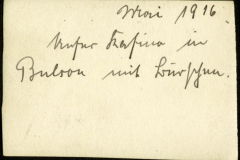 Mai 1916.
Unser Kasino in
Bulson mit Burschen.